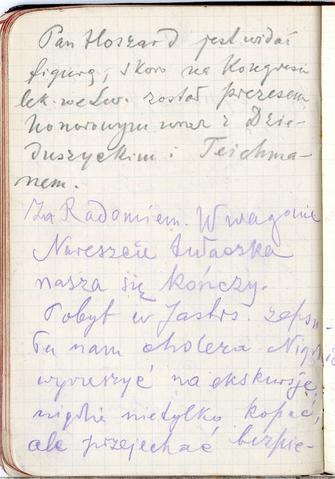 Pan Hoszard jest widać
figurą, skoro na Kongresie
lek. we Lw. został prezesem
honorowym wraz z Dzie-
duszyckim i Teichma-
nem.
Za Radomiem. W wagonie
Nareszcie tułaczka
nasza się kończy.
Pobyt w Jastrz. zepsu-
ła nam cholera
wyruszyć na ekskursję
nigdzie nietylko kopać,
ale przejechać bezpie-